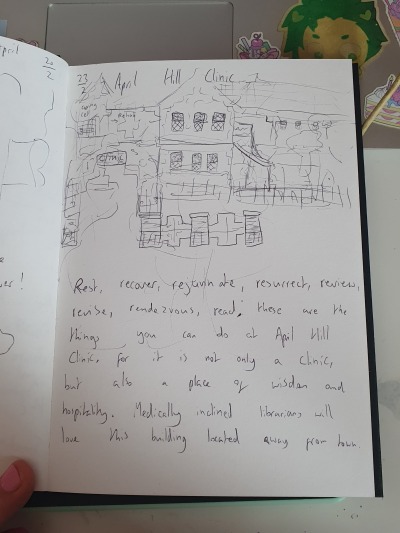 April
20
2
23
2
April Hill Clinic
CLINIC
Rest, recover, rejuvinate, resurrect, review,
revise, rendezvous, read, these are the
things you can do at April Hill
Clinic, for it is not only a clinic,
but also a place of wisdom and
hospitality. Medically inclined librarians will
love this building located away from town.